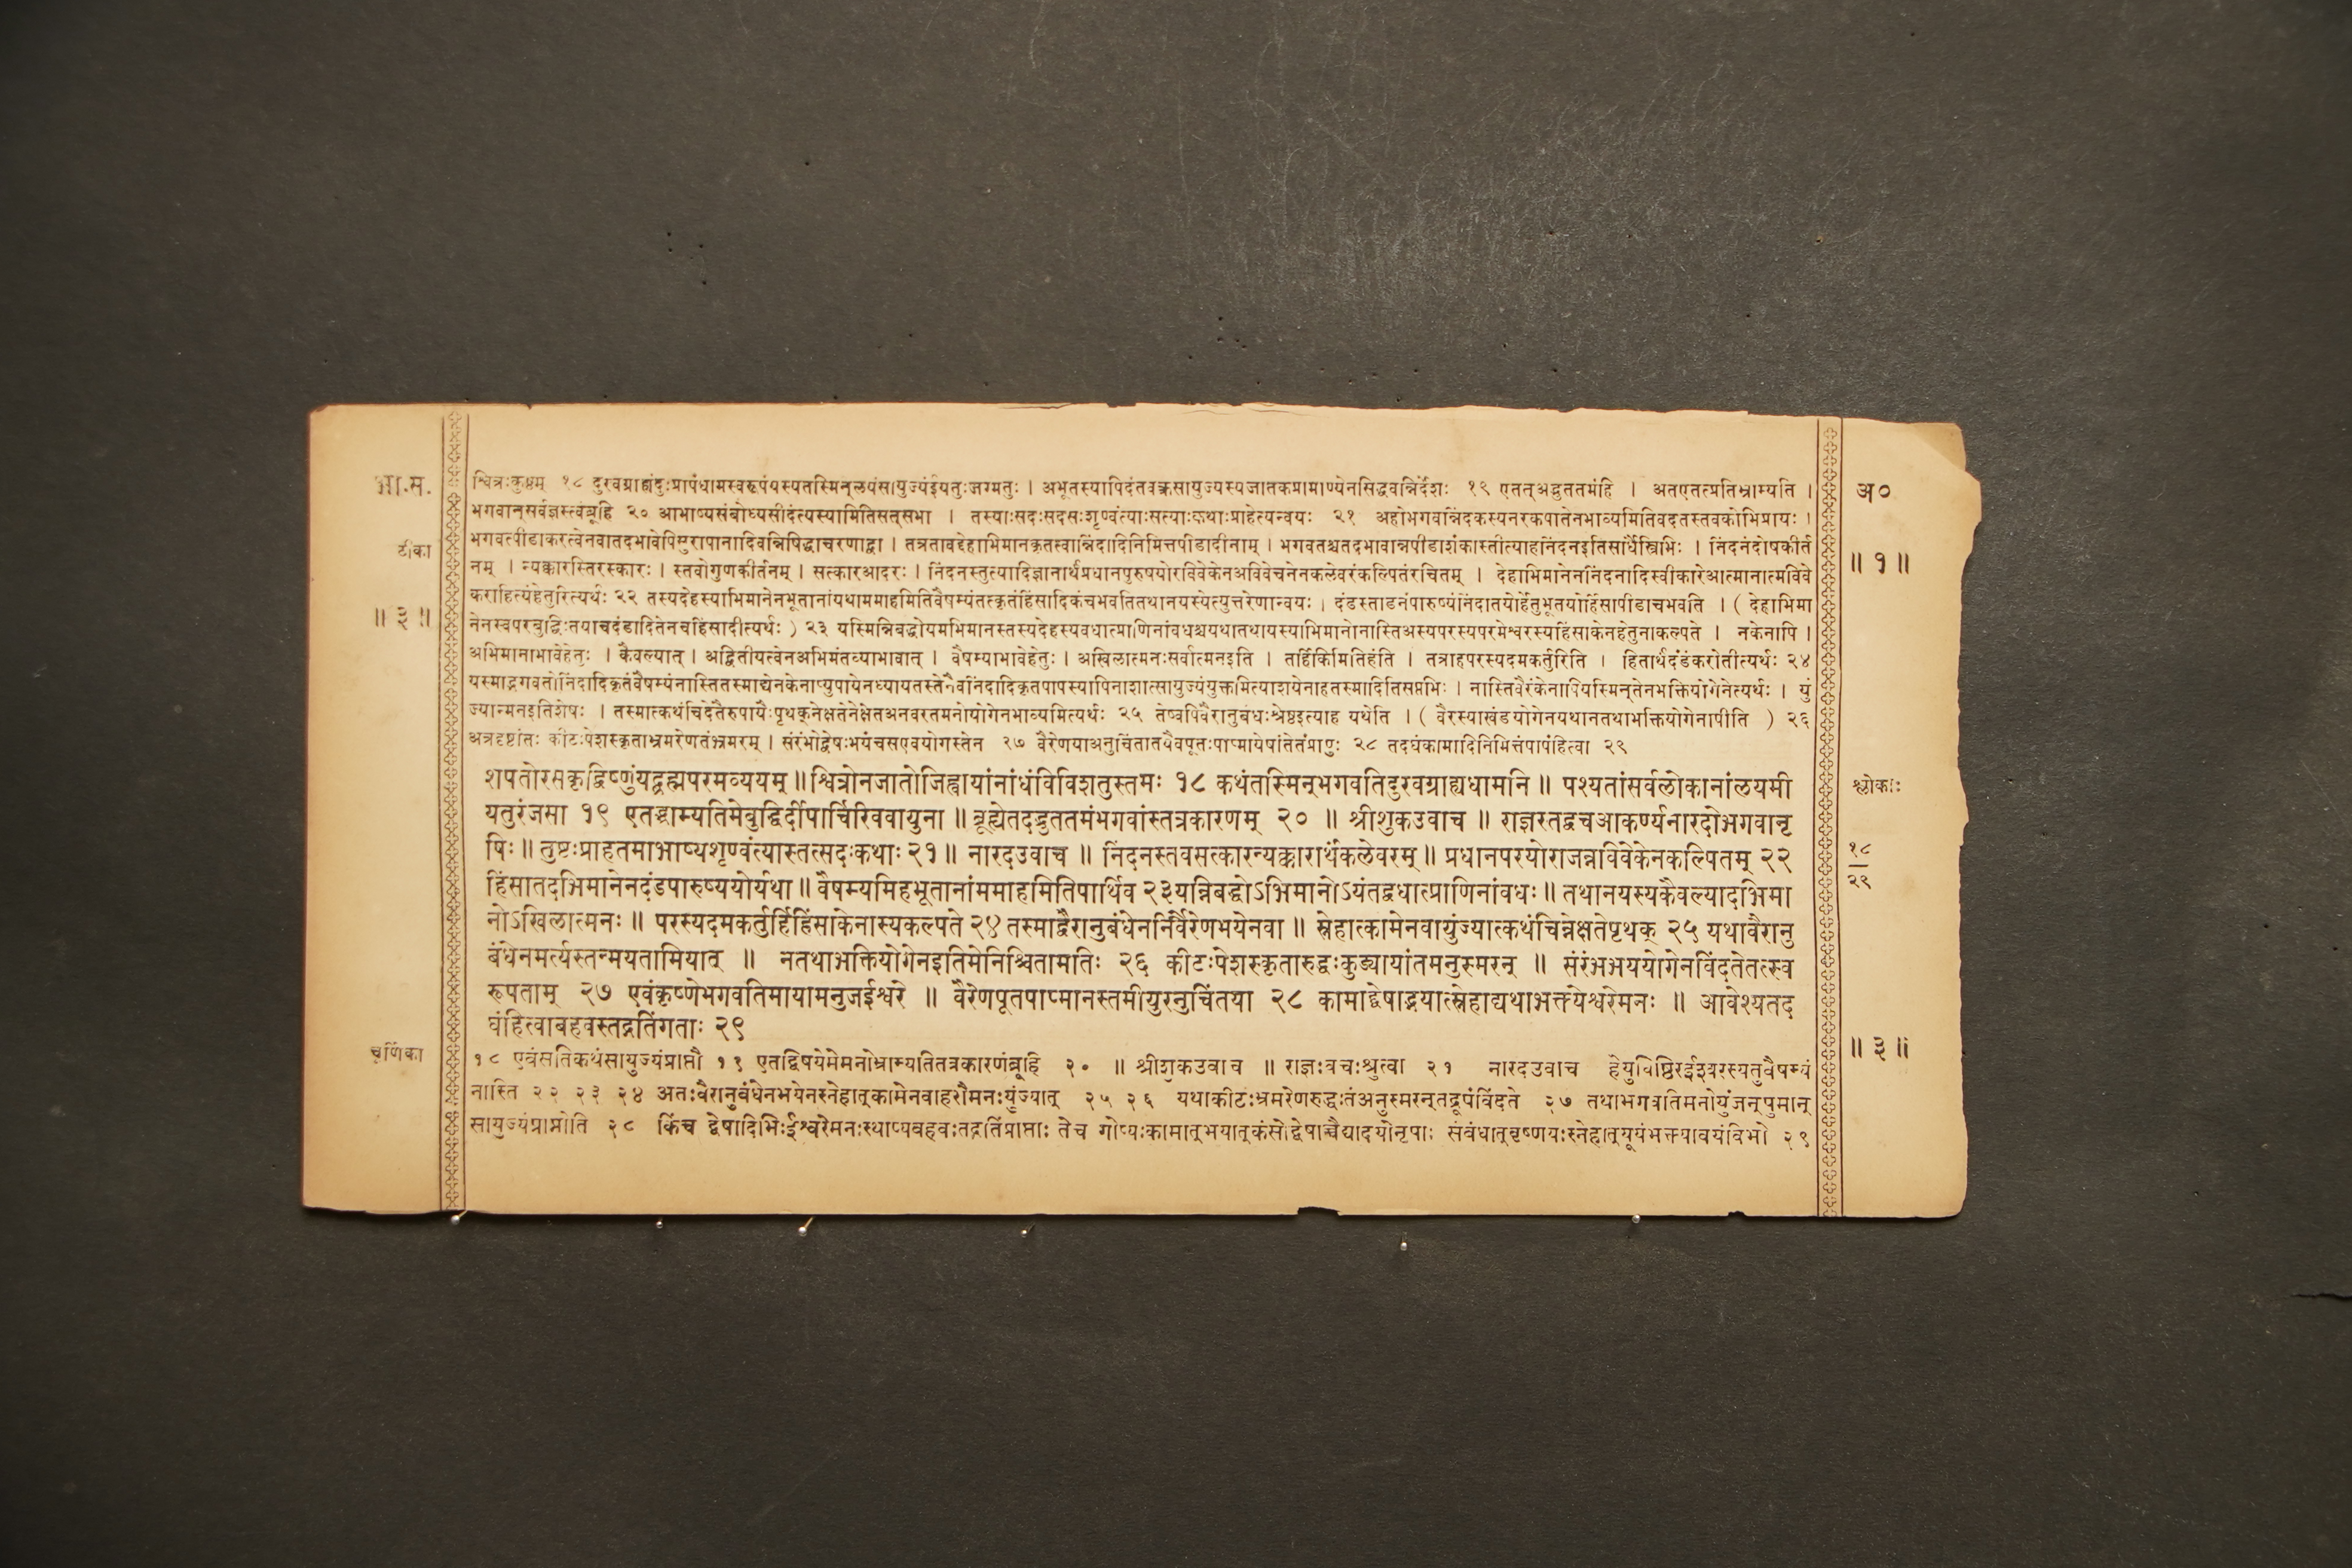 भा.स.
श्वित्रःकुष्ठम् १८ दुरवग्राह्यंदुःप्रापंधामस्वरूपंयस्यतस्मिन्लयंसायुज्यंईयतुःजग्मतुः । अभूतस्यापिदंतवक्रसायुज्यस्यजातकप्रामाण्येनसिद्धवन्निर्देशः १९ एतत्अद्भुततमंहि । अतएतत्प्रतिभ्राम्यति ।
अ०
भगवान्सर्वज्ञस्त्वंब्रूहि २० आभाष्यसंबोध्यसीदंत्यस्यामितिसत्सभा । तस्याःसदःसदसःशृण्वंत्याःसत्याःकथाःप्राहेत्यन्वयः २१ अहोभगवन्निंदकस्यनरकपातेनभाव्यमितिवदतस्तवकोभिप्रायः ।
टीका
भगवत्पीडाकरत्वेनवातदभावेपिसुरापानादिवन्निषिद्धाचरणाद्वा । तत्रतावद्देहाभिमानकृतस्वान्निंदादिनिमित्तपीडादीनाम् । भगवतश्चतदभावान्नपीडाशंकास्तीत्याहनिंदनइतिसार्धैस्त्रिभिः । निंदनंदोषकीर्त
॥ १ ॥
नम् । न्यक्कारस्तिरस्कारः । स्तवोगुणकीर्तनम् । सत्कारआदरः । निंदनस्तुत्यादिज्ञानार्थंप्रधानपुरुषयोरविवेकेनअविवेचनेनकलेवरंकल्पितंरचितम् । देहाभिमानेननिंदनादिस्वीकारेआत्मानात्मविवे
करााहित्यंहेतुरित्यर्थः २२ तस्यदेहस्याभिमानेनभूतानांयथाममाहमितिवैषम्यंतत्कृतंहिंसादिकंचभवतितथानयस्येत्युत्तरेणान्वयः । दंडस्ताडनंपारुष्यंनिंदातयोर्हेतुभूतयोर्हिंसापीडाचभवति । ( देहाभिमा
॥ ३ ॥
नेनस्वपरबुद्धिःतयाचदंडादितेनचहिंसादीत्यर्थः ) २३ यस्मिन्निबद्धोयमभिमानस्तस्यदेहस्यवधात्प्राणिनांवधश्चयथातथायस्याभिमानोनास्तिअस्यपरस्यपरमेश्वरस्यहिंसाकेनहेतुनाकल्पते । नकेनापि ।
अभिमानाभावेहेतुः । कैवल्यात् । अद्वितीयत्वेनअभिमंतव्याभावात् । वैषम्याभावेहेतुः । अखिलात्मनःसर्वात्मनइति । तर्हिकिमितिहंति । तत्राहपरस्यदमकर्तुरिति । हितार्थंदंडंकरोतीत्यर्थः २४
यस्माद्भगवतोनिंदादिकृतंवैषम्यंनास्तितस्माद्येनकेनाप्युपायेनध्यायतस्तेनैवनिंदादिकृतपापस्यापिनाशात्सायुज्यंयुक्तमित्याशयेनाहतस्मादितिसप्तभिः । नास्तिवैरंकेनापियस्मिन्तेनभक्तियोगेनेत्यर्थः । युं
ज्यान्मनइतिशेषः । तस्मात्कथंचिदेतैरुपायैःपृथक्नेक्षतेनेक्षेतअनवरतमनोयोगेनभाव्यमित्यर्थः २५ तेष्वपिवैरानुबंधःश्रेष्ठइत्याह यथेति । ( वैरस्याखंडयोगेनयथानतथाभक्तियोगेनापीति ) २६
अत्रदृष्टांतः कीटःपेशस्कृताभ्रमरेणतंभ्रमरम् । संरंभोद्वेषःभयंचसएवयोगस्तेन २७ वैरेणयाअनुचिंतातयैवपूतःपाप्मायेषांतेतंप्रापुः २८ तदघंकामादिनिमित्तंपापंहित्वा २९
शपतोरसकृद्विष्णुंयद्ब्रह्मपरमव्ययम् ॥ श्वित्रोनजातोजिह्वायांनांधंविविशतुस्तमः १८ कथंतस्मिन्भगवतिदुरवग्राह्यधामनि ॥ पश्यतांसर्वलोकानांलयमी
श्लोकाः
यतुरंजसा १९ एतद्भ्राम्यतिमेबुद्धिर्दीपार्चिरिववायुना ॥ ब्रूह्येतदद्भुततमंभगवांस्तत्रकारणम् २० ॥ श्रीशुकउवाच ॥ राज्ञस्तद्वचआकर्ण्यनारदोभगवानृ
षिः ॥ तुष्टःप्राहतमाभाष्यशृण्वंत्यास्तत्सदःकथाः २१ ॥ नारदउवाच ॥ निंदनस्तवसत्कारन्यक्कारार्थंकलेवरम् ॥ प्रधानपरयोराजन्नविवेकेनकल्पितम् २२
१८
२९
हिंसातदभिमानेनदंडपारुष्ययोर्यथा ॥ वैषम्यमिहभूतानांममाहमितिपार्थिव २३ यन्निबद्धोऽभिमानोऽयंतद्वधात्प्राणिनांवधः ॥ तथानयस्यकैवल्यादभिमा
नोऽखिलात्मनः ॥ परस्यदमकर्तुर्हिहिंसाकेनास्यकल्पते २४ तस्माद्वैरानुबंधेननिर्वैरेणभयेनवा ॥ स्नेहात्कामेनवायुंज्यात्कथंचिन्नेक्षतेपृथक् २५ यथावैरानु
बंधेनमर्त्यस्तन्मयतामियात् ॥ नतथाभक्तियोगेनइतिमेनिश्चितामतिः २६ कीटःपेशस्कृतारुद्धःकुड्यायांतमनुस्मरन् ॥ संरंभभययोगेनविंदतेतत्स्व
रूपताम् २७ एवंकृष्णेभगवतिमायामनुजईश्वरे ॥ वैरेणपूतपाप्मानस्तमीयुरनुचिंतया २८ कामाद्द्वेषाद्भयात्स्नेहाद्यथाभक्त्येश्वरेमनः ॥ आवेश्यतद
घंहित्वाबहवस्तद्गतिंगताः २९
चूर्णिका
१८ एवंसतिकथंसायुज्यंप्राप्तौ १९ एतद्विषयेमेमनोभ्राम्यतितत्रकारणंब्रूहि २० ॥ श्रीशुकउवाच ॥ राज्ञःवचःश्रुत्वा २१ नारदउवाच हेयुधिष्ठिरईश्वरस्यतुवैषम्यं
॥ ३ ॥
नास्ति २२ २३ २४ अतःवैरानुबंधेनभयेनस्नेहात्कामेनवाहरौमनःयुंज्यात् २५ २६ यथाकीटःभ्रमरेणरुद्धःतंअनुस्मरन्तद्रूपंविंदते २७ तथाभगवतिमनोयुंजन्पुमान्
सायुज्यंप्राप्नोति २८ किंच द्वेषादिभिःईश्वरेमनःस्थाप्यबहवःतद्गतिंप्राप्ताः तेच गोप्यःकामात्भयात्कंसोद्वेषाच्चैद्यादयोनृपाः संबंधात्वृष्णयःस्नेहात्यूयंभक्त्यावयंविभो २९